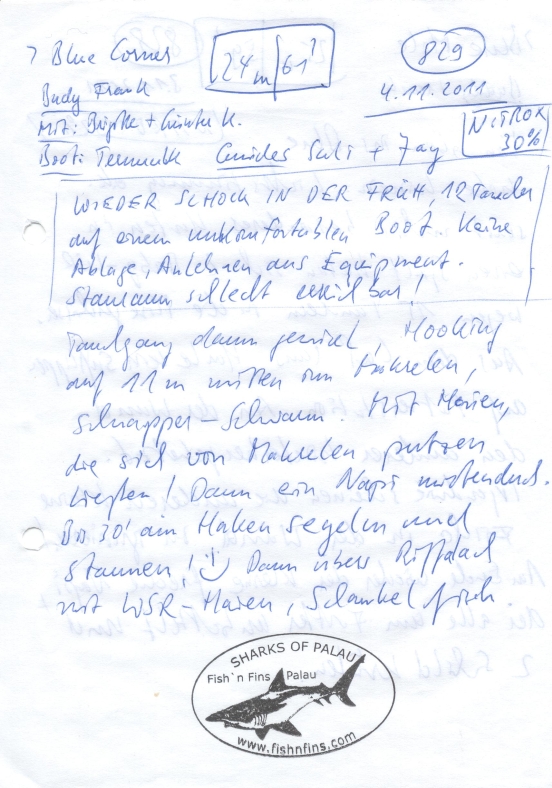 > Blue Corner
24m | 61'
829
Budy Frank
4.11.2011
Mit: Brigitte + Günter K.
NITROX
30%
Boot: Guides Sati + Jay
WIEDER SCHOCK IN DER FRÜH, 12 Taucher
auf einem unkomfortablen Boot. Keine
Ablage, Anlehnen, ans Equipment.
Stauraum schlecht erreichbar!
Tauchgang dann genial, Hooking
auf 11m mitten im Makrelen,
Schnapper-Schwarm. Mit Haien,
die sich von Makrelen putzen
ließen! Dann ein Napi mittendurch.
Bis 30' am Haken segeln und
staunen! Dann übers Riffdach
mit WSR-Haien, Schaukelfisch
SHARKS OF PALAU
Fish`n Fins Palau
www.fishnfins.com